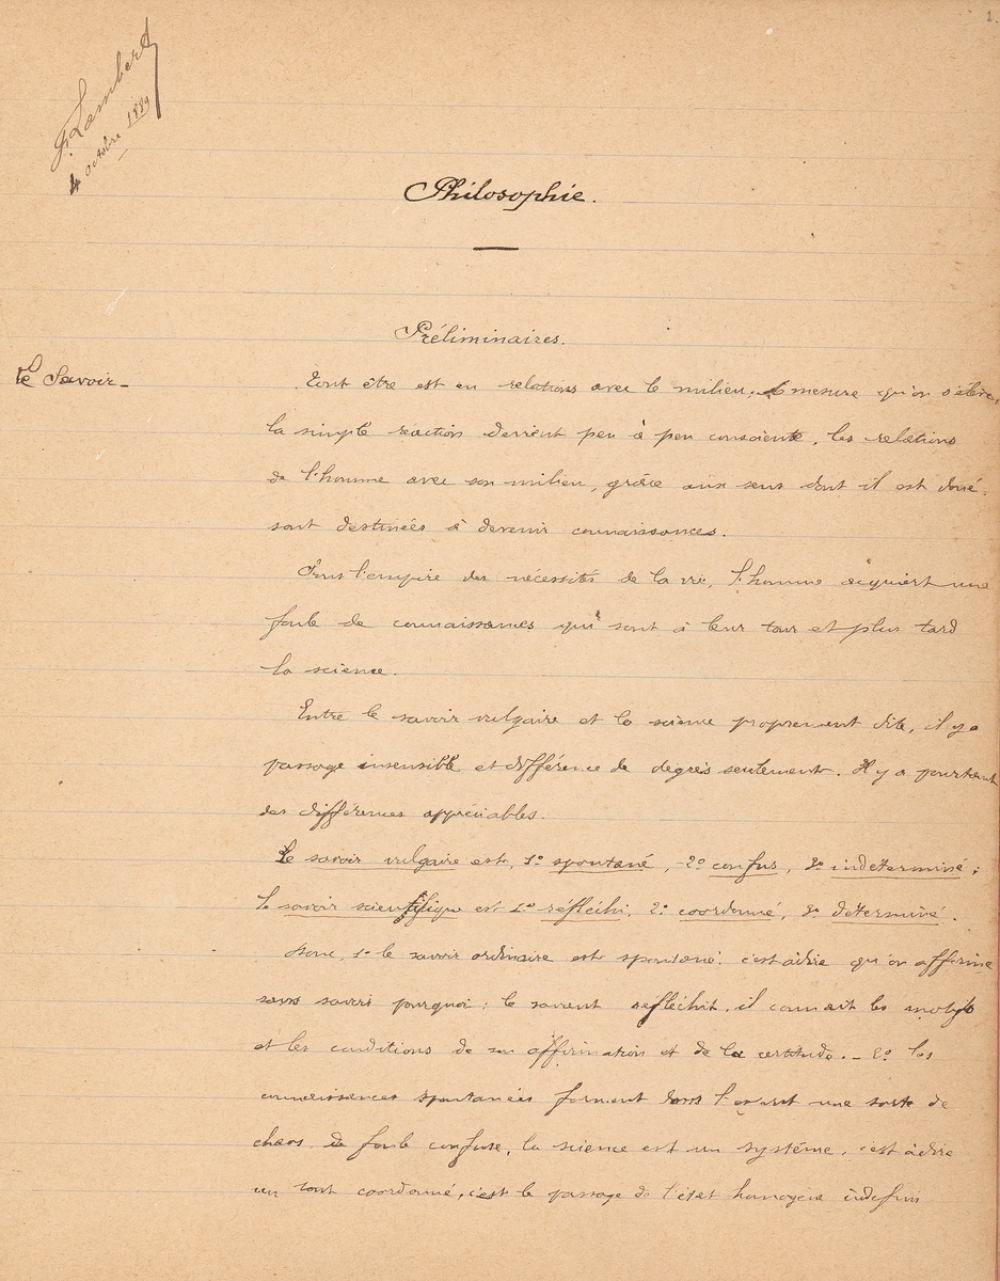 1
F. Lambert
4 octobre 1889
Philosophie.
Préliminaires.
Le Savoir_
Tout être est en relations avec le milieu. A mesure qu'on s'élève,
la simple réaction devient peu à peu consciente, les relations
de l'homme avec son milieu, grâce aux sens dont il est doué,
sont destinées à devenir connaissances.
Sous l'empire des nécessités de la vie, l'homme acquiert une
foule de connaissances qui sont à leur tour et plus tard
la science.
Entre le savoir vulgaire et la science proprement dite, il y a
passage insensible et différence de degrés seulement. Il y a pourtant
des différences appréciables.
Le savoir vulgaire est, 1º spontané, -2º confus, 3º indéterminé;
le savoir scientifique est 1º réfléchi, 2º coordonné, 3º déterminé.
Donc, 1º le savoir ordinaire est spontané: c'est à dire qu'on affirme
sans savoir pourquoi: le savant réfléchit, il connait les motifs
et les conditions de son affirmation et de la certitude._ 2º les
connaissances spontanées forment dans l'esprit une sorte de
chaos de foule confuse, la science est un système, c'est à dire
un tout coordonné, c'est le passage de l'état homogène indéfini